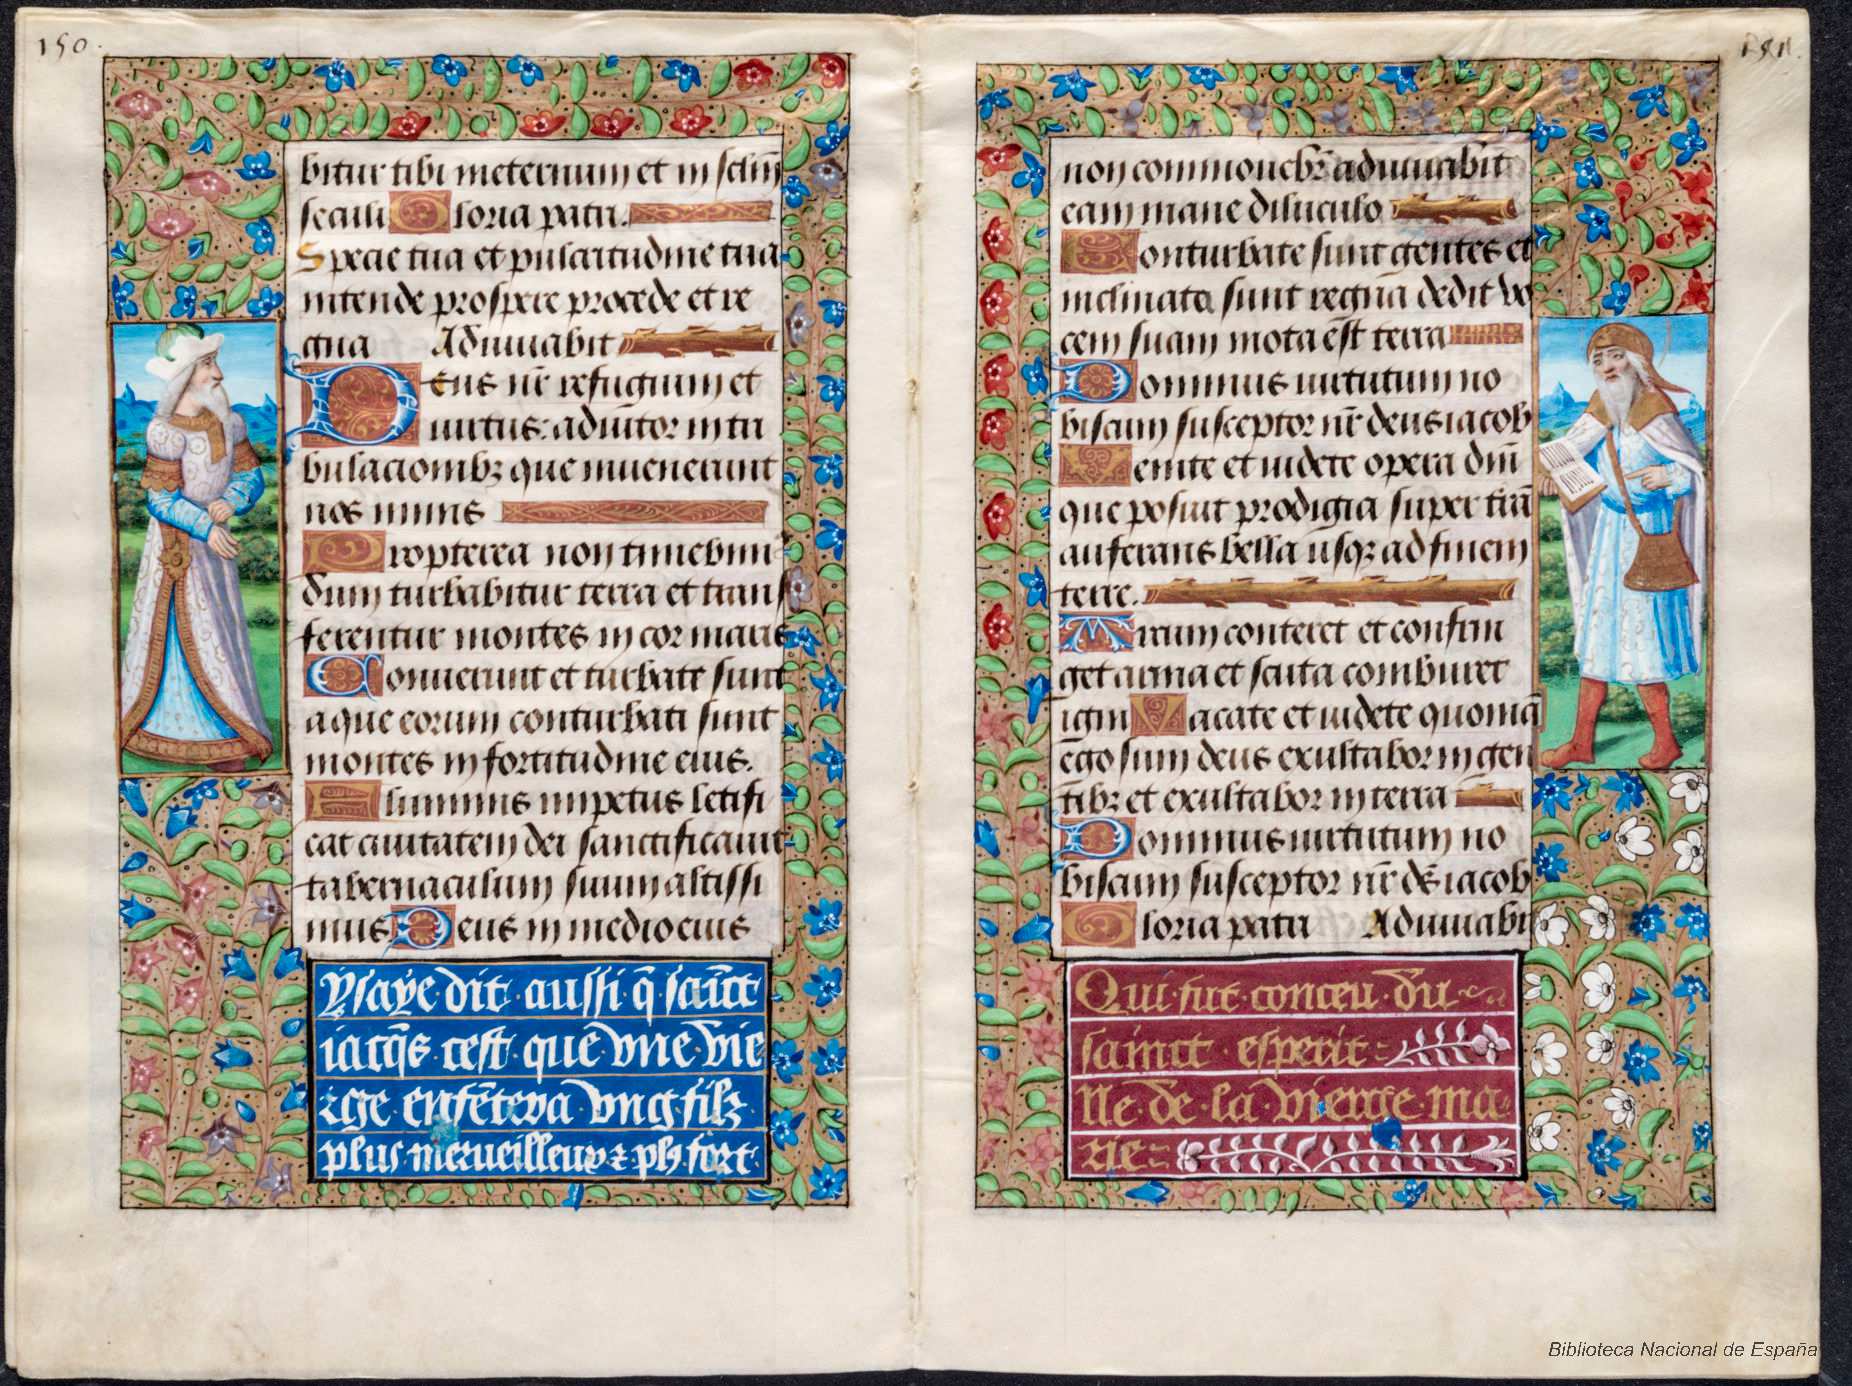 150.
bitur tibi meternum et in seclm̄
seculi Gloria patri.
Specie tua et pulcritudine tua
intende prospere procede et re
gna Adiuuabit
Deus nr̄ refugium et
uirtus: adiutor in tri
bulacionibꝫ que inuenerunt
nos nimis
Propterea non timebim̄
dum turbabitur terra et trans
ferentur montes in cor maris
Sonuerunt et turbate sunt
aque eorum conturbati sunt
montes in fortitudine eius.
Fluminis impetus letifi
cat ciuitatem dei sanctificauit
tabernaculum suum altissi
mus Deus in medio eius
Ysaye dit aussi q̄ sait̄
iacq̄s cest que vne vie
rge enfētera vng filz
plus merueilleux ⁊ plꝰ fort
non commouebr̄ adiuuabit
eam mane diluculo
Conturbate sunt gentes et
inclinata sunt regna dedit vo
cem suam mota est terra
Dominus uirtutum no
biscum susceptor nr̄ deus iacob
Venite et uidete opera dnī
que posuit prodigia super trā
auferens bella usqꝫ ad finem
terre.
Arcum conteret et confrin
get arma et scuta comburet
igni Vacate et uidete quoniā
ego sum deus exultabor in gen
tibꝫ et exultabor in terra
Dominus uirtutum no
biscum susceptor nr̄ ds̄ iacob
Gloria patri Adiuuabit
Qui fut conceu du
sainct esperit
Ne de la vierge ma
rie
Biblioteca Nacional de España